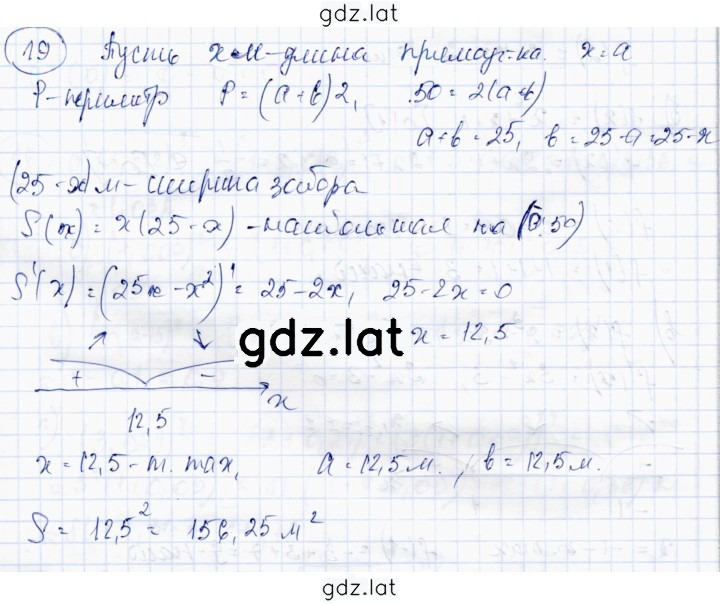 gdz.lat
19 Пусть x м-длина прямоуг-ка. x = a
P-периметр P = (a+b)2, 50 = 2(a+b)
a+b = 25, b = 25-a = 25-x
(25-x) м - ширина забора
S(x) = x(25-x) - наибольшая на (0; 50)
S'(x) = (25x - x²)' = 25-2x, 25-2x=0
x = 12,5
gdz.lat
+ -
x
12,5
x = 12,5 - т. max, a = 12,5 м., b = 12,5 м.
S = 12,5² = 156,25 м²
gdz.lat